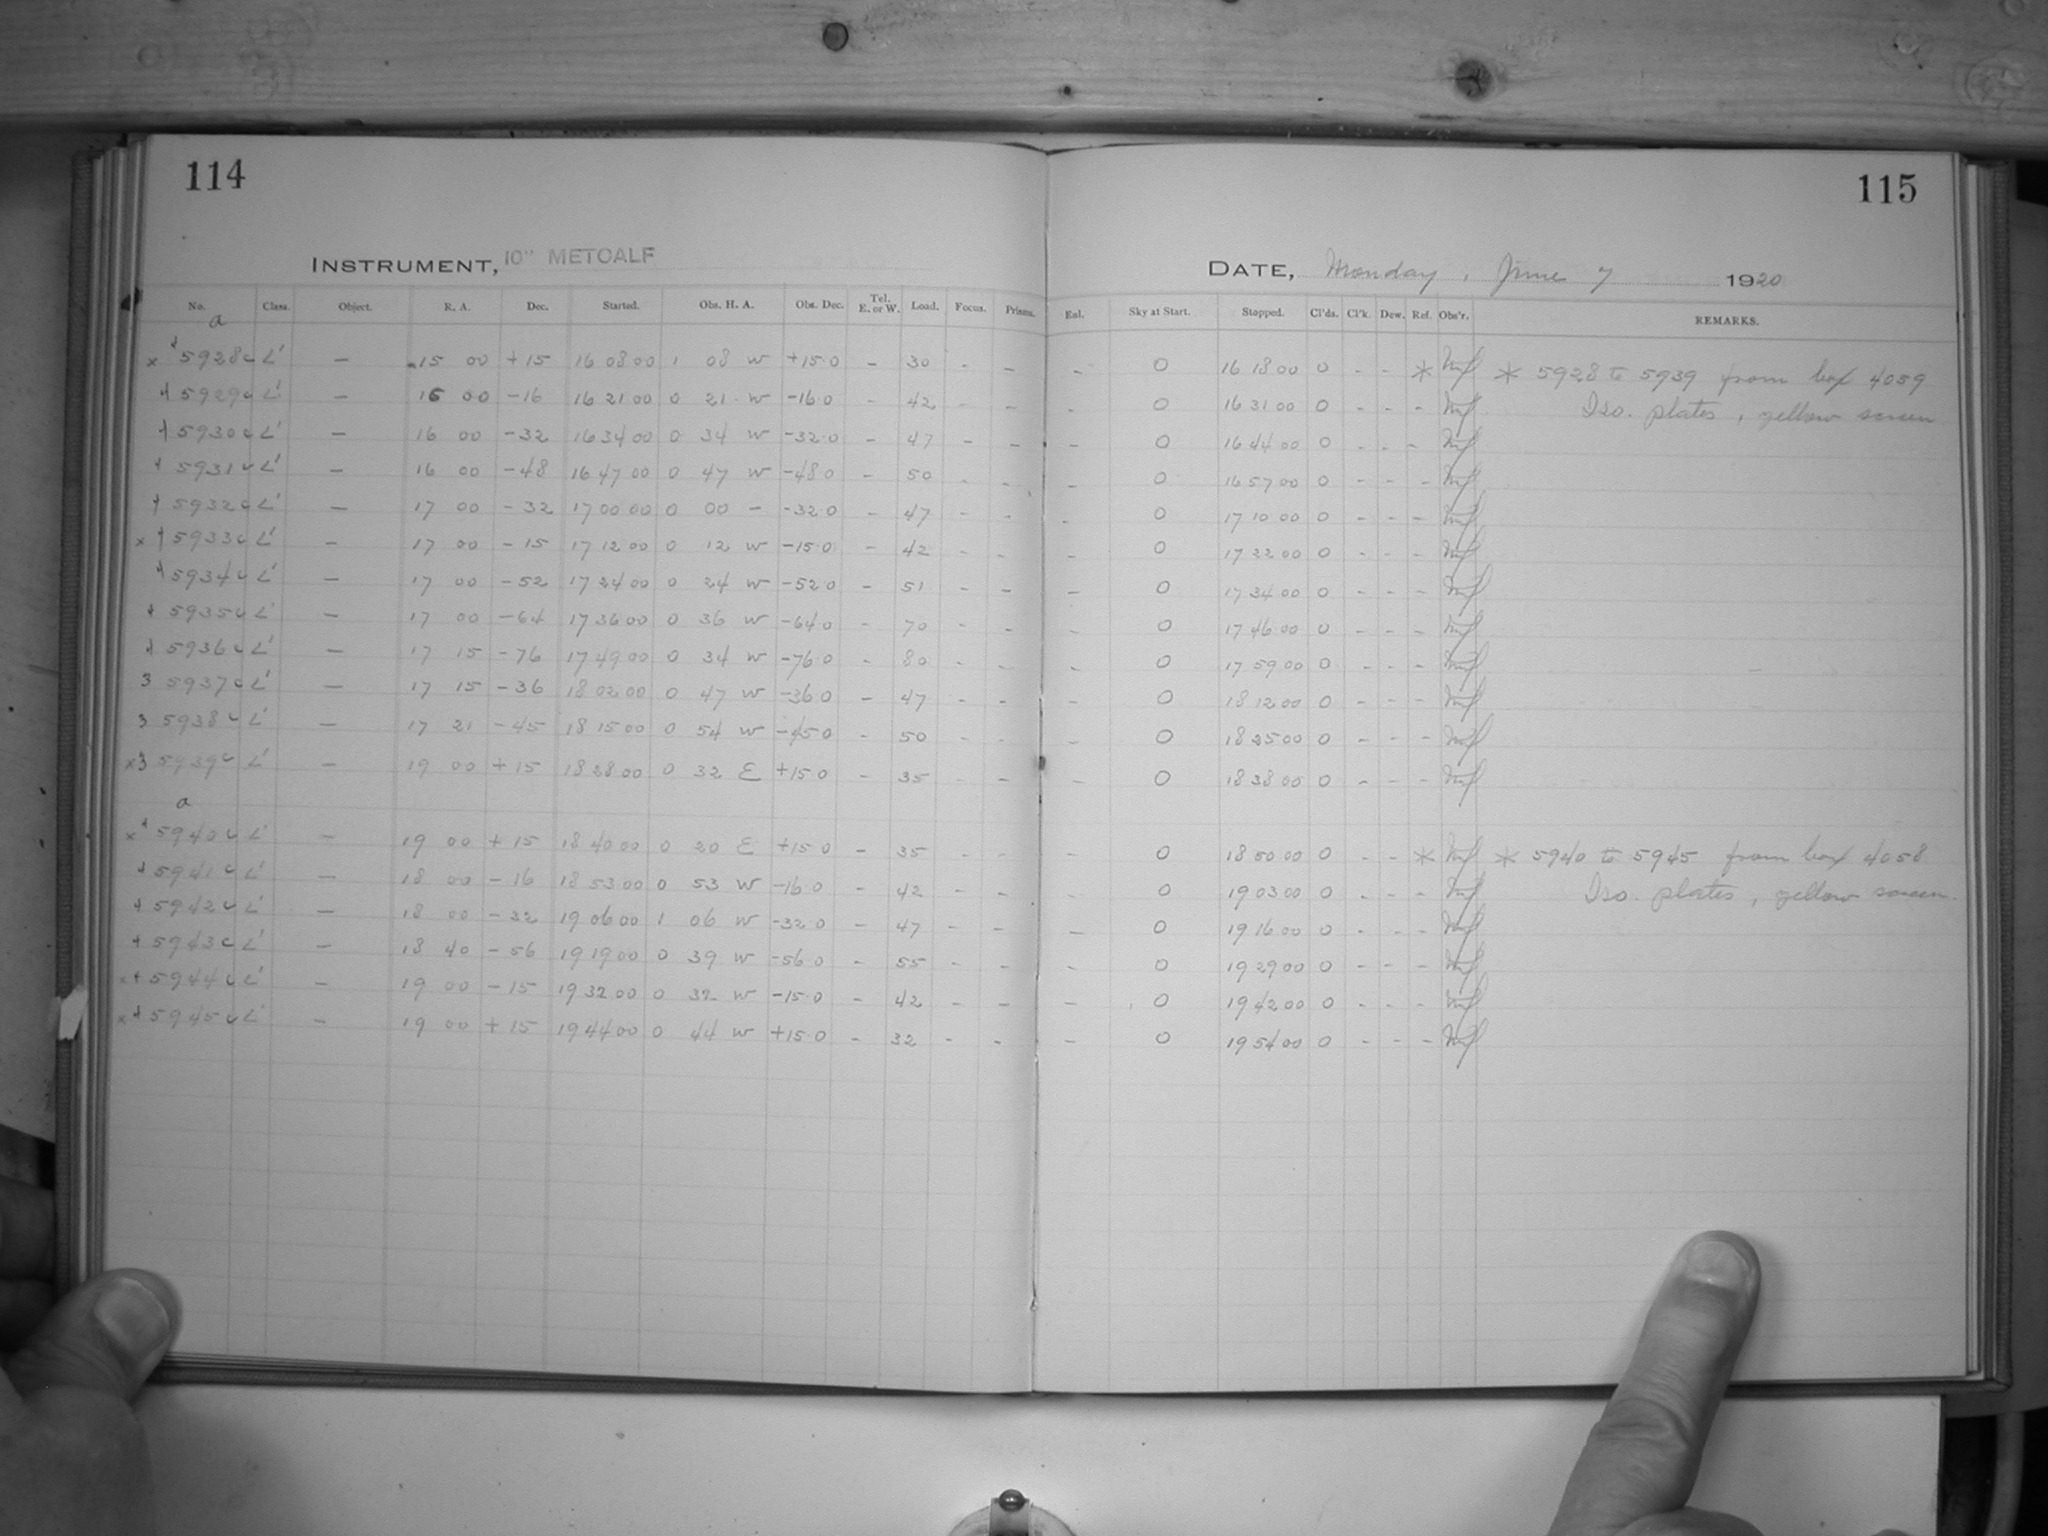 114
115
INSTRUMENT, 10" METCALF
DATE, Monday, June 7 1920
No. Class. Object. R. A. Dec. Started. Obs. H. A. Obs. Dec. Tel. E. or W. Load. Focus. Prisms. Enl. Sky at Start. Stopped. Cl'ds. Cl'k. Dew. Ref. Obs'r. REMARKS.
a
5928 c L' — 15 00 +15 16 08 00 1 08 W +15 0 – 30 – – – 0 16 18 00 0 – – * * 5928 to 5939 from box 4059
5929 c L' — 16 00 -16 16 21 00 0 21 W -16 0 – 42 – – – 0 16 31 00 0 – – – Iso. plates, yellow screen
5930 c L' — 16 00 -32 16 34 00 0 34 W -32 0 – 47 – – – 0 16 44 00 0 – – –
5931 c L' — 16 00 -48 16 47 00 0 47 W -48 0 – 50 – – – 0 16 57 00 0 – – –
5932 c L' — 17 00 -32 17 00 00 0 00 – -32 0 – 47 – – – 0 17 10 00 0 – – –
x 5933 c L' — 17 00 -15 17 12 00 0 12 W -15 0 – 42 – – – 0 17 22 00 0 – – –
5934 c L' — 17 00 -52 17 24 00 0 24 W -52 0 – 51 – – – 0 17 34 00 0 – – –
5935 c L' — 17 00 -64 17 36 00 0 36 W -64 0 – 70 – – – 0 17 46 00 0 – – –
5936 c L' — 17 15 -76 17 49 00 0 34 W -76 0 – 80 – – – 0 17 59 00 0 – – –
3 5937 c L' — 17 15 -36 18 02 00 0 47 W -36 0 – 47 – – – 0 18 12 00 0 – – –
3 5938 c L' — 17 21 -45 18 15 00 0 54 W -45 0 – 50 – – – 0 18 25 00 0 – – –
x3 5939 c L' — 19 00 +15 18 28 00 0 32 E +15 0 – 35 – – – 0 18 38 00 0 – – –
a
x 5940 c L' — 19 00 +15 18 40 00 0 20 E +15 0 – 35 – – – 0 18 50 00 0 – – * * 5940 to 5945 from box 4058
5941 c L' — 18 00 -16 18 53 00 0 53 W -16 0 – 42 – – – 0 19 03 00 0 – – – Iso. plates, yellow screen.
5942 c L' — 18 00 -32 19 06 00 1 06 W -32 0 – 47 – – – 0 19 16 00 0 – – –
5943 c L' — 18 40 -56 19 19 00 0 39 W -56 0 – 55 – – – 0 19 29 00 0 – – –
x 5944 c L' — 19 00 -15 19 32 00 0 32 W -15 0 – 42 – – – 0 19 42 00 0 – – –
x 5945 c L' — 19 00 +15 19 44 00 0 44 W +15 0 – 32 – – – 0 19 54 00 0 – – –